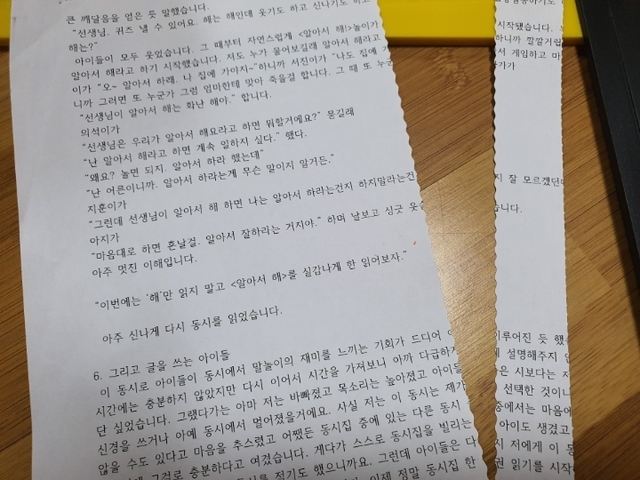 큰 깨달음을 얻은 듯 말했습니다.
"선생님. 퀴즈 낼 수 있어요. 해는 해인데 웃기도 하고 신나기도 하고
해는?"
아이들이 모두 웃었습니다. 그 때부터 자연스럽게 <알아서 해!>놀이가 시작됐습니다.
알아서 해라고 하기 시작했습니다. 저도 누가 물어보길래 알아서 해라고 하니까 깔깔거립
이가 "오~ 알아서 하래. 나 집에 가야지~"하니까 서진이가 "나도 집에 가서 게임하고 마
니까 그러면 또 누군가 그럼 엄마한테 맞아 죽을걸 합니다. 그 때 또 누군가가
"선생님이 알아서 해는 화난 해야." 합니다.
의석이가
"선생님은 우리가 알아서 해요라고 하면 뭐할거예요?" 묻길래
"난 알아서 해라고 하면 계속 일하지 싶다." 했다.
"왜요? 놀면 되지. 알아서 하라 했는데"
"난 어른이니까. 알아서 하라는게 무슨 말이지 알거든."
지훈이가
"그런데 선생님이 알아서 해 하면 나는 알아서 하라는건지 하지말라는건지 잘 모르겠던데
아지가
"마음대로 하면 혼날걸. 알아서 잘하라는 거지야." 하며 날보고 싱긋 웃습니다.
아주 멋진 이해입니다.
"이번에는 '해'만 읽지 말고 <알아서 해>를 실감나게 한 읽어보자."
아주 신나게 다시 동시를 읽었습니다.
6. 그리고 글을 쓰는 아이들
이 동시로 아이들이 동시에서 말놀이의 재미를 느끼는 기회가 드디어 이루어진 듯 했
시간에는 충분하지 않았지만 다시 이어서 시간을 가져보니 아까 다급하게 설명해주지
단 싶었습니다. 그랬다가는 아마 저는 바빠졌고 목소리는 높아졌고 아이들은 시보다는 저
신경을 쓰거나 아예 동시에서 멀어졌을거예요. 사실 저는 이 동시는 제가 선택한 것이
않을 수도 있다고 마음을 추스렸고 어쨌든 동시집 중에 있는 다른 동시 중에서는 마음에
충분하다고 여겼습니다. 게다가 스스로 동시집을 빌리는 아이도 생겼고
동시를 적기도 했으니까요. 그런데 아이들은 다 저에게 이 동
이제 정말 동시집 한 권 읽기를 시작